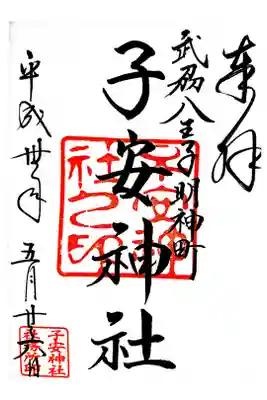 奉拝
武州八王子明神町
子安神社
平成卅年五月廿六日
子安神社之印
子安神社
社務所印